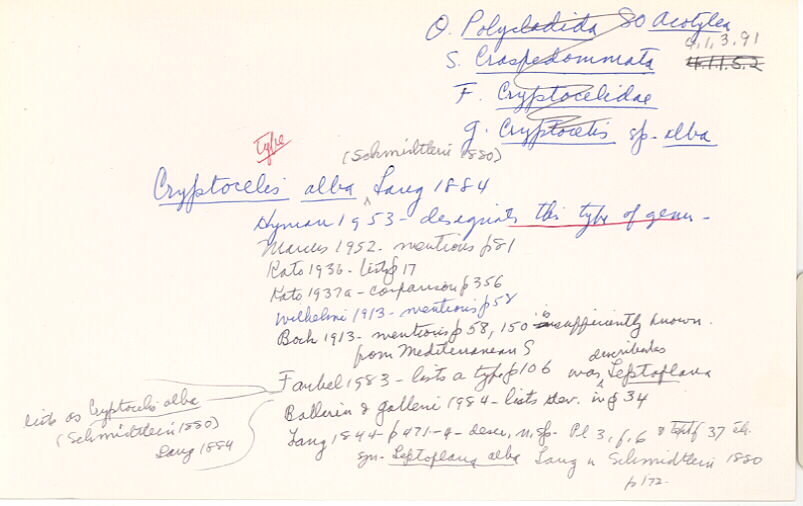 O. Polycladida SO Acotylea
4.1.3.91
S. Craspedommata 4.1.1.5.2
F. Cryptocelidae
g. Cryptocelis sp. alba
type
(Schmidtlein 1880)
Cryptocelis alba ^ Lang 1884
Hyman 1953 - designats this type of genus -
Marcus 1952 - mentions p 81
Kato 1936 - lists p 17
Kato 1937a - comparison p 356
Wilhelmi 1913 - mentions p 58
Bock 1913 - mentions p 58, 150 is insufficiently known.
from Mediterranean S
Faubel 1983 - lists a type p 106 was ^ described as Leptoplana
Ballerin & Galleni 1984 - lists p 34
lists as Cryptocelis alba
(Schmidtlein 1880)
Lang 1884
Lang 1884 - p 471-4 - descr. n. sp. Pl 3, f. 6 & 37
syn. Leptoplana alba Lang in Schmidtlein 1880
p 172.